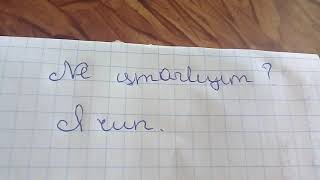 Ne ısmarlıyım ?
I run.